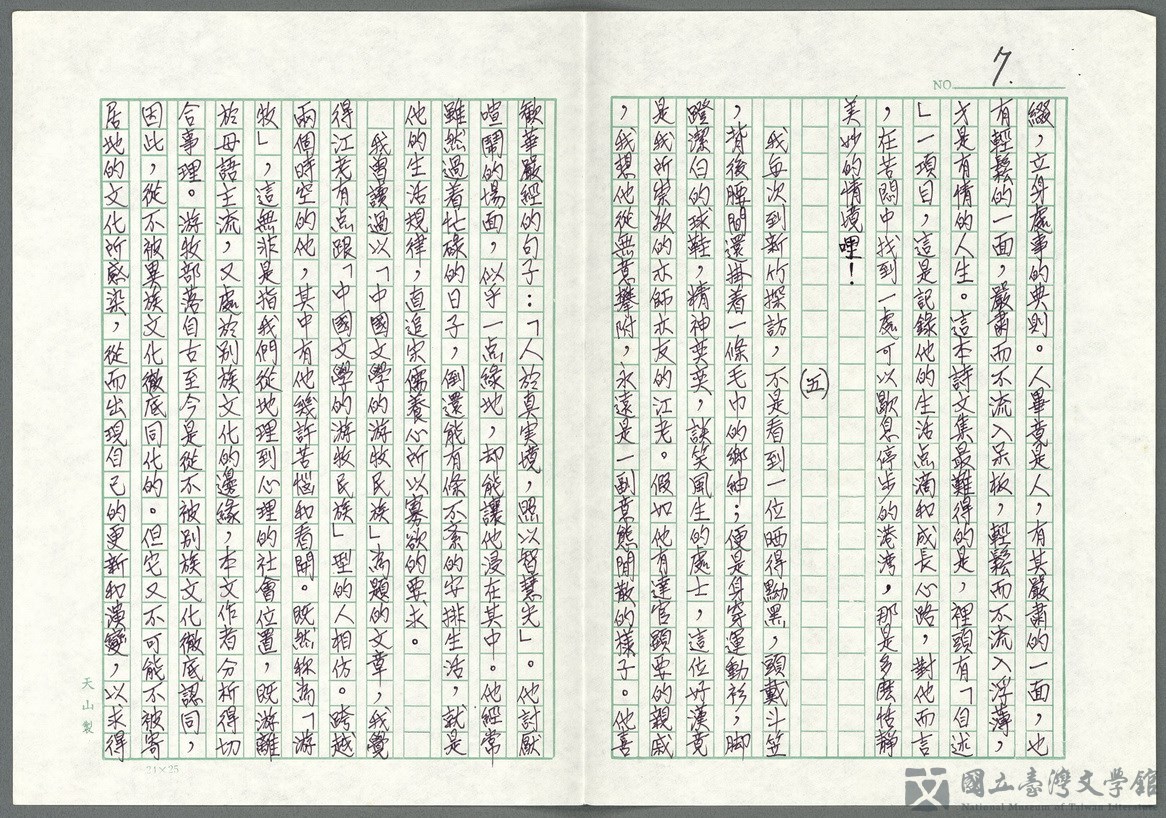 NO 7.
綴，立身處事的典則。人畢竟是人，有其嚴肅的一面，也
有輕鬆的一面，嚴肅而不流入呆板，輕鬆而不流入浮薄，
才是有情的人生。這本詩文集最難得的是，裡頭有「自述
」一項目，這是記錄他的生活点滴和成長心路，對他而言
，在苦悶中找到一處可以歇息停步的港灣，那是多麼恬靜
美妙的情境哩！
(五)
我每次到新竹探訪，不是看到一位晒得黝黑，頭戴斗笠
，背後腰間還掛着一條毛巾的鄉紳；便是身穿運動衫，脚
蹬潔白的球鞋，精神奕奕，談笑風生的處士，這位好漢竟
是我所崇敬的亦師亦友的江老。假如他有達官顯要的親戚
，我想他從無意攀附，永遠是一副意態閒散的樣子。他喜
歡華嚴經的句子：「人於真実境，照以智慧光」。他討厭
喧鬧的場面，似乎一点緣地，却能讓他浸在其中。他經常
雖然過着忙碌的日子，倒還能有條不紊的安排生活，就是
他的生活規律，直追宋儒養心所以寡欲的要求。
我曾讀過以「中國文學的游牧民族」為題的文章，我覺
得江老有点跟「中國文學的游牧民族」型的人相仿。跨越
兩個時空的他，其中有他幾許苦惱和看開。既然稱為「游
牧」，這無非是指我們從地理到心理的社會位置，既游離
於母語主流，又處於別族文化的邊緣，本文作者分析得切
合事理。游牧部落自古至今是從不被別族文化徹底認同，
因此，從不被異族文化徹底同化的。但它又不可能不被寄
居地的文化所感染，從而出現自己的更新和演變，以求得
天山製
21×25
國立臺灣文學館
National Museum of Taiwan Literature